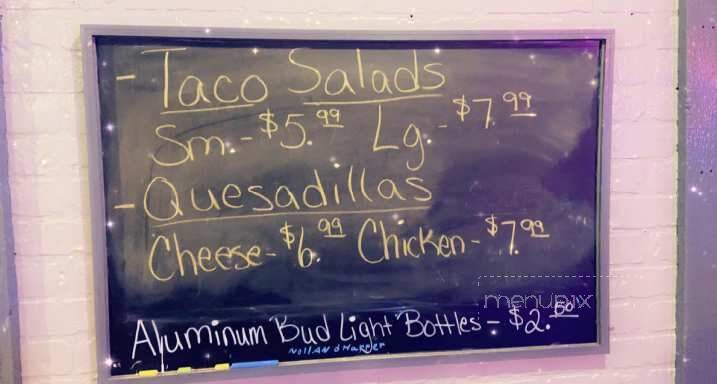 - Taco Salads
Sm. - $5.99 Lg. - $7.99
- Quesadillas
Cheese - $6.99 Chicken - $7.99
menupix
Aluminum "Bud Light" Bottles - $2.50